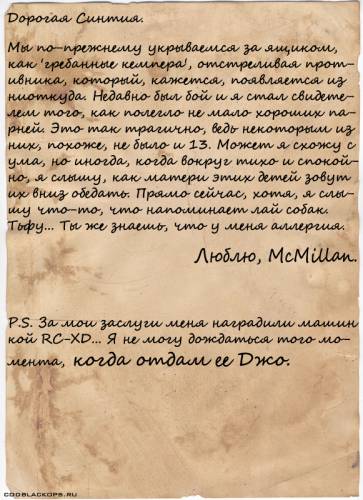 Дорогая Синтия.
Мы по-прежнему укрываемся за ящиком,
как 'гребанные кемпера', отстреливая прот-
ивника, который, кажется, появляется из
ниоткуда. Недавно был бой и я стал свидете-
лем того, как полегло не мало хороших па-
рней. Это так трагично, ведь некоторым из
них, похоже, не было и 13. Может я схожу с
ума, но иногда, когда вокруг тихо и спокой-
но, я слышу, как матери этих детей зовут
их вниз обедать. Прямо сейчас, хотя, я слы-
шу что-то, что напоминает лай собак.
Тьфу... Ты же знаешь, что у меня аллергия.
Люблю, McMillan.
P.S. За мои заслуги меня наградили машин
кой RC-XD... Я не могу дождаться того мо-
мента, когда отдам ее Джо.
CODBLACKOPS.RU